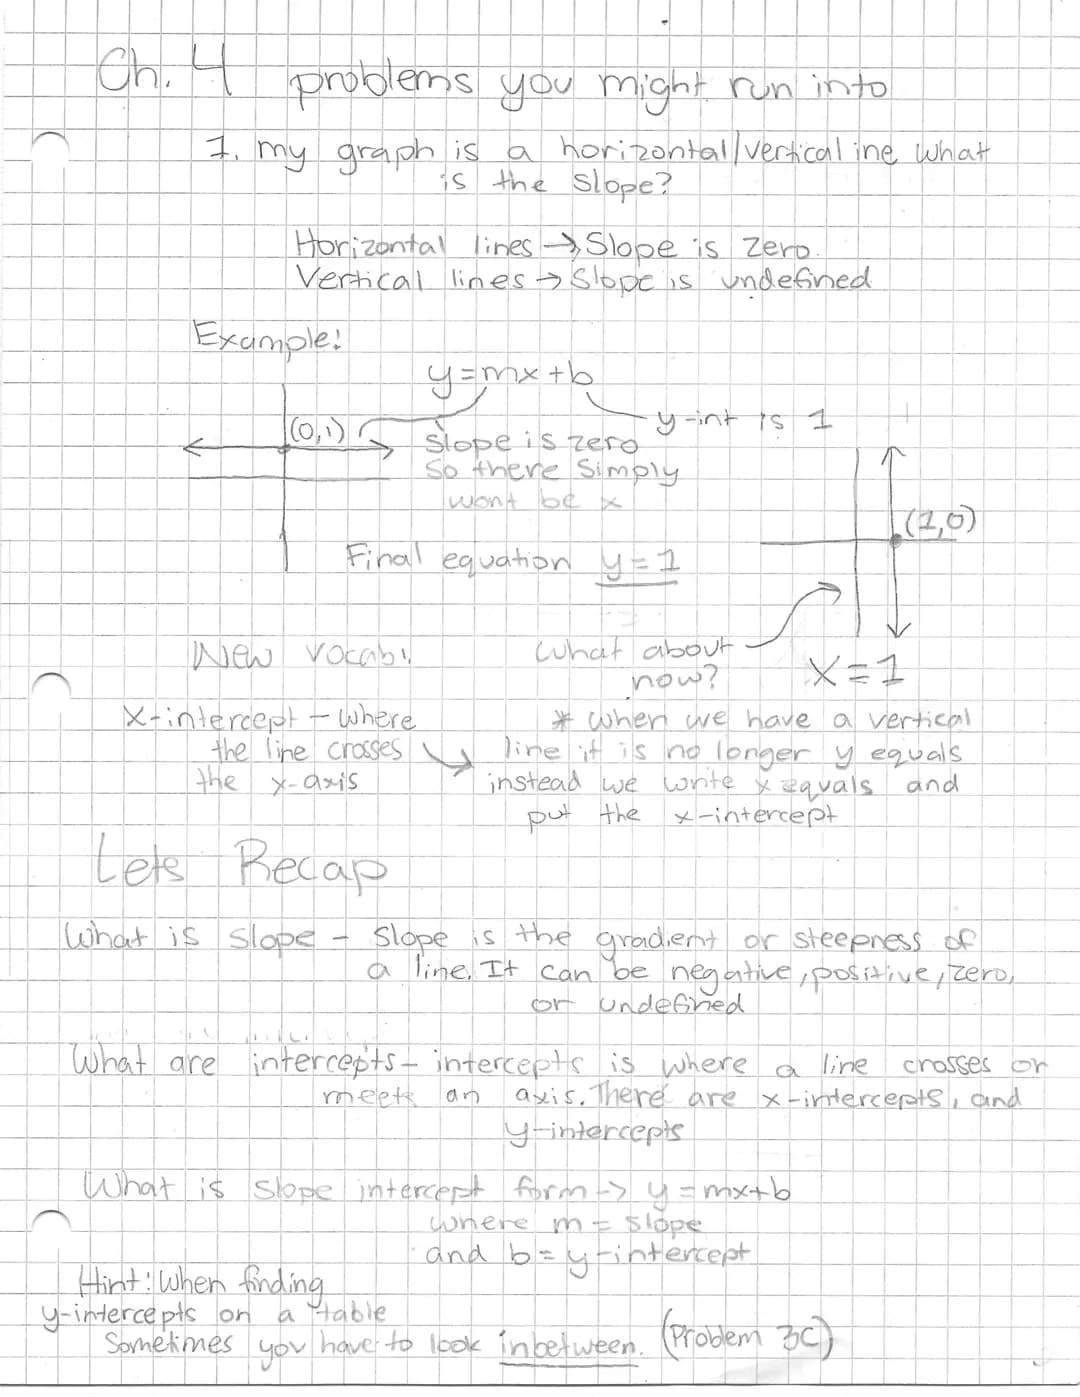 Ch. 4 problems you might run into
1. my graph is a horizontal/vertical ine what
is the slope?
Horizontal lines → Slope is zero.
Vertical lines → Slope is undefined
Example!
y=mx+b
(0,1)
y-int is 1
slope is zero
So there simply
wont be x
(1,0)
Final equation y=1
New vocab!
What about
now?
x=1
X-intercept - where
the line crosses
the x-axis
* when we have a vertical
line it is no longer y equals
instead we write x equals and
put the x-intercept
Lets Recap
What is slope - Slope is the gradient or steepness of
a line. It can be negative, positive, zero,
or undefined
What are intercepts - intercepts is where a line crosses or
meets an axis. There are x-intercepts, and
y-intercepts
What is slope intercept form -> y=mx+b
where m = slope
and b = y-intercept
Hint: When finding
y-intercepts on a table
Sometimes you have to look inbetween. (Problem 3C)